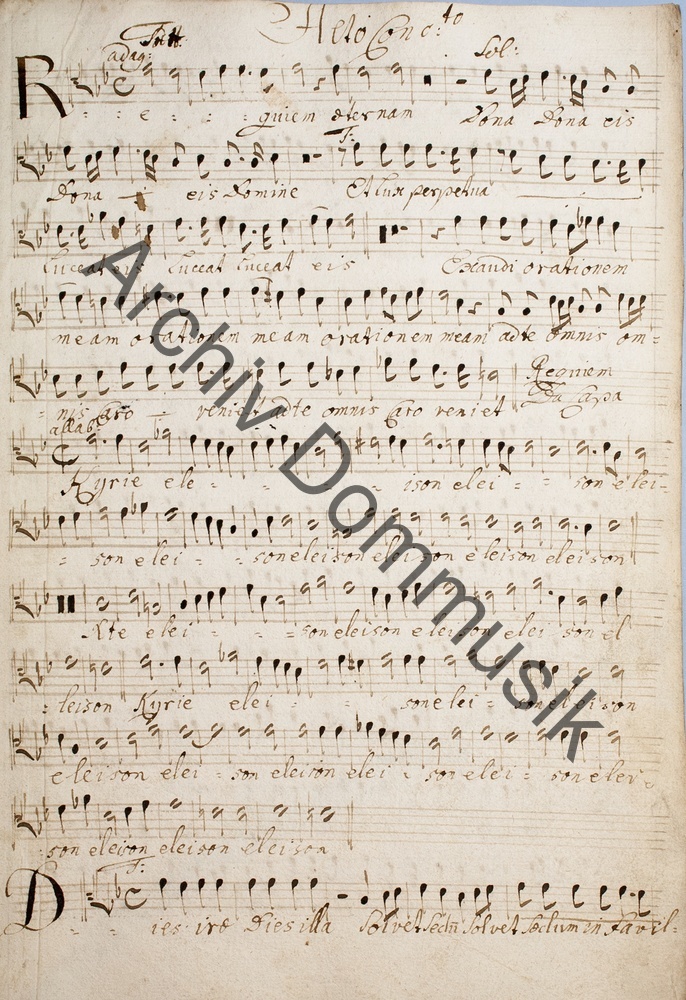 Alto Conc:to
Tutti.
adag: Sol:
R - e - - - quiem æternam Dona Dona eis
T:
Dona - i eis Domine Et lux perpetua
luceat eis luceat luceat eis Exaudi orationem
meam orationem meam orationem meam ad te omnis om=
= nis Caro - veniet ad te omnis Caro veniet Requiem Da Capo
allab:
Kyrie ele - - - ison elei - - son elei-
= son elei - - son eleison eleison eleison eleison
Kte elei - - - son eleison eleison elei son el
= leison Kyrie elei - - - son elei = son eleison
eleison elei = son eleison elei - son elei = son elei-
= son eleison eleison eleison
T:
D - - ies iræ Dies illa Solvet sæclū Solvet sæclum in favil=
Archiv Dommusik